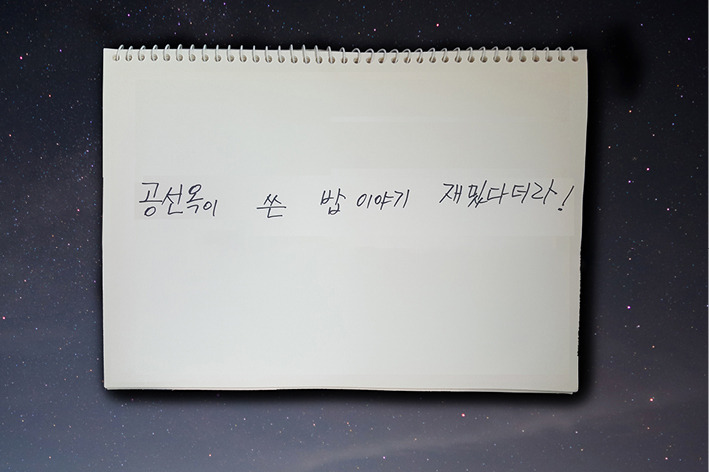 공선옥이 쓴 밥 이야기 재밌다더라!